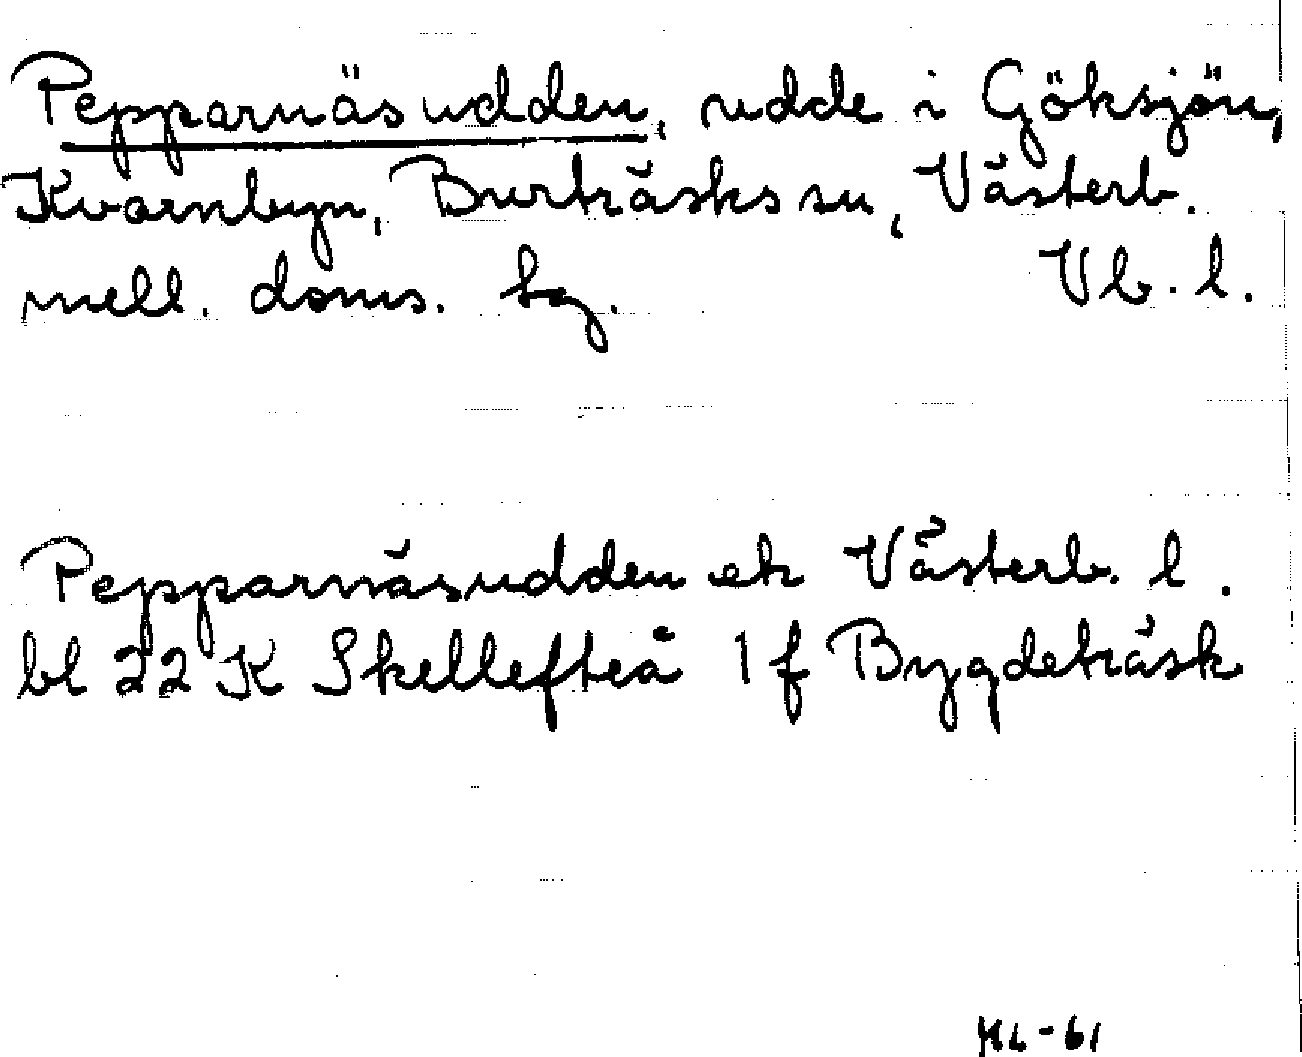 Pepparnäsudden, udde i Göksjön,
Kvarnbyn, Burträsks sn, Västerb.
mell. doms. sg. Vb. l.
Pepparnäsudden ek Västerb. l.
bl 22 K Skellefteå 1 f Bygdeträsk
ML-61